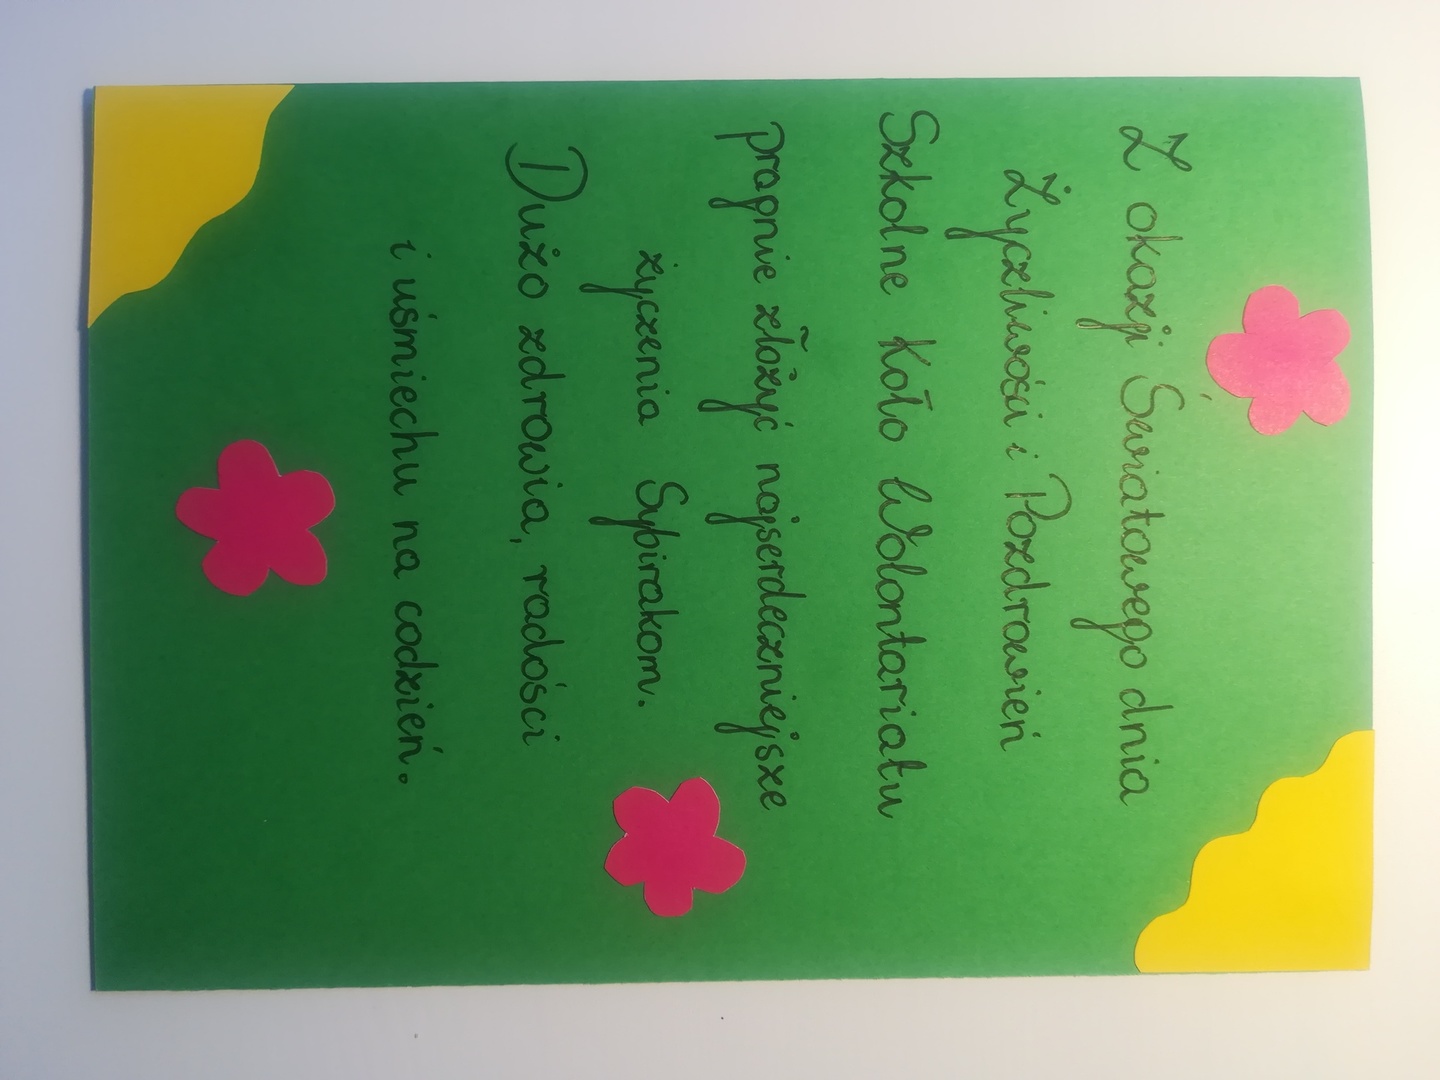 Z okazji Światowego dnia
Życzliwości i Pozdrowień
Szkolne Koło Wolontariatu
pragnie złożyć najserdeczniejsze
życzenia Sybirakom.
Dużo zdrowia, radości
i uśmiechu na codzień.